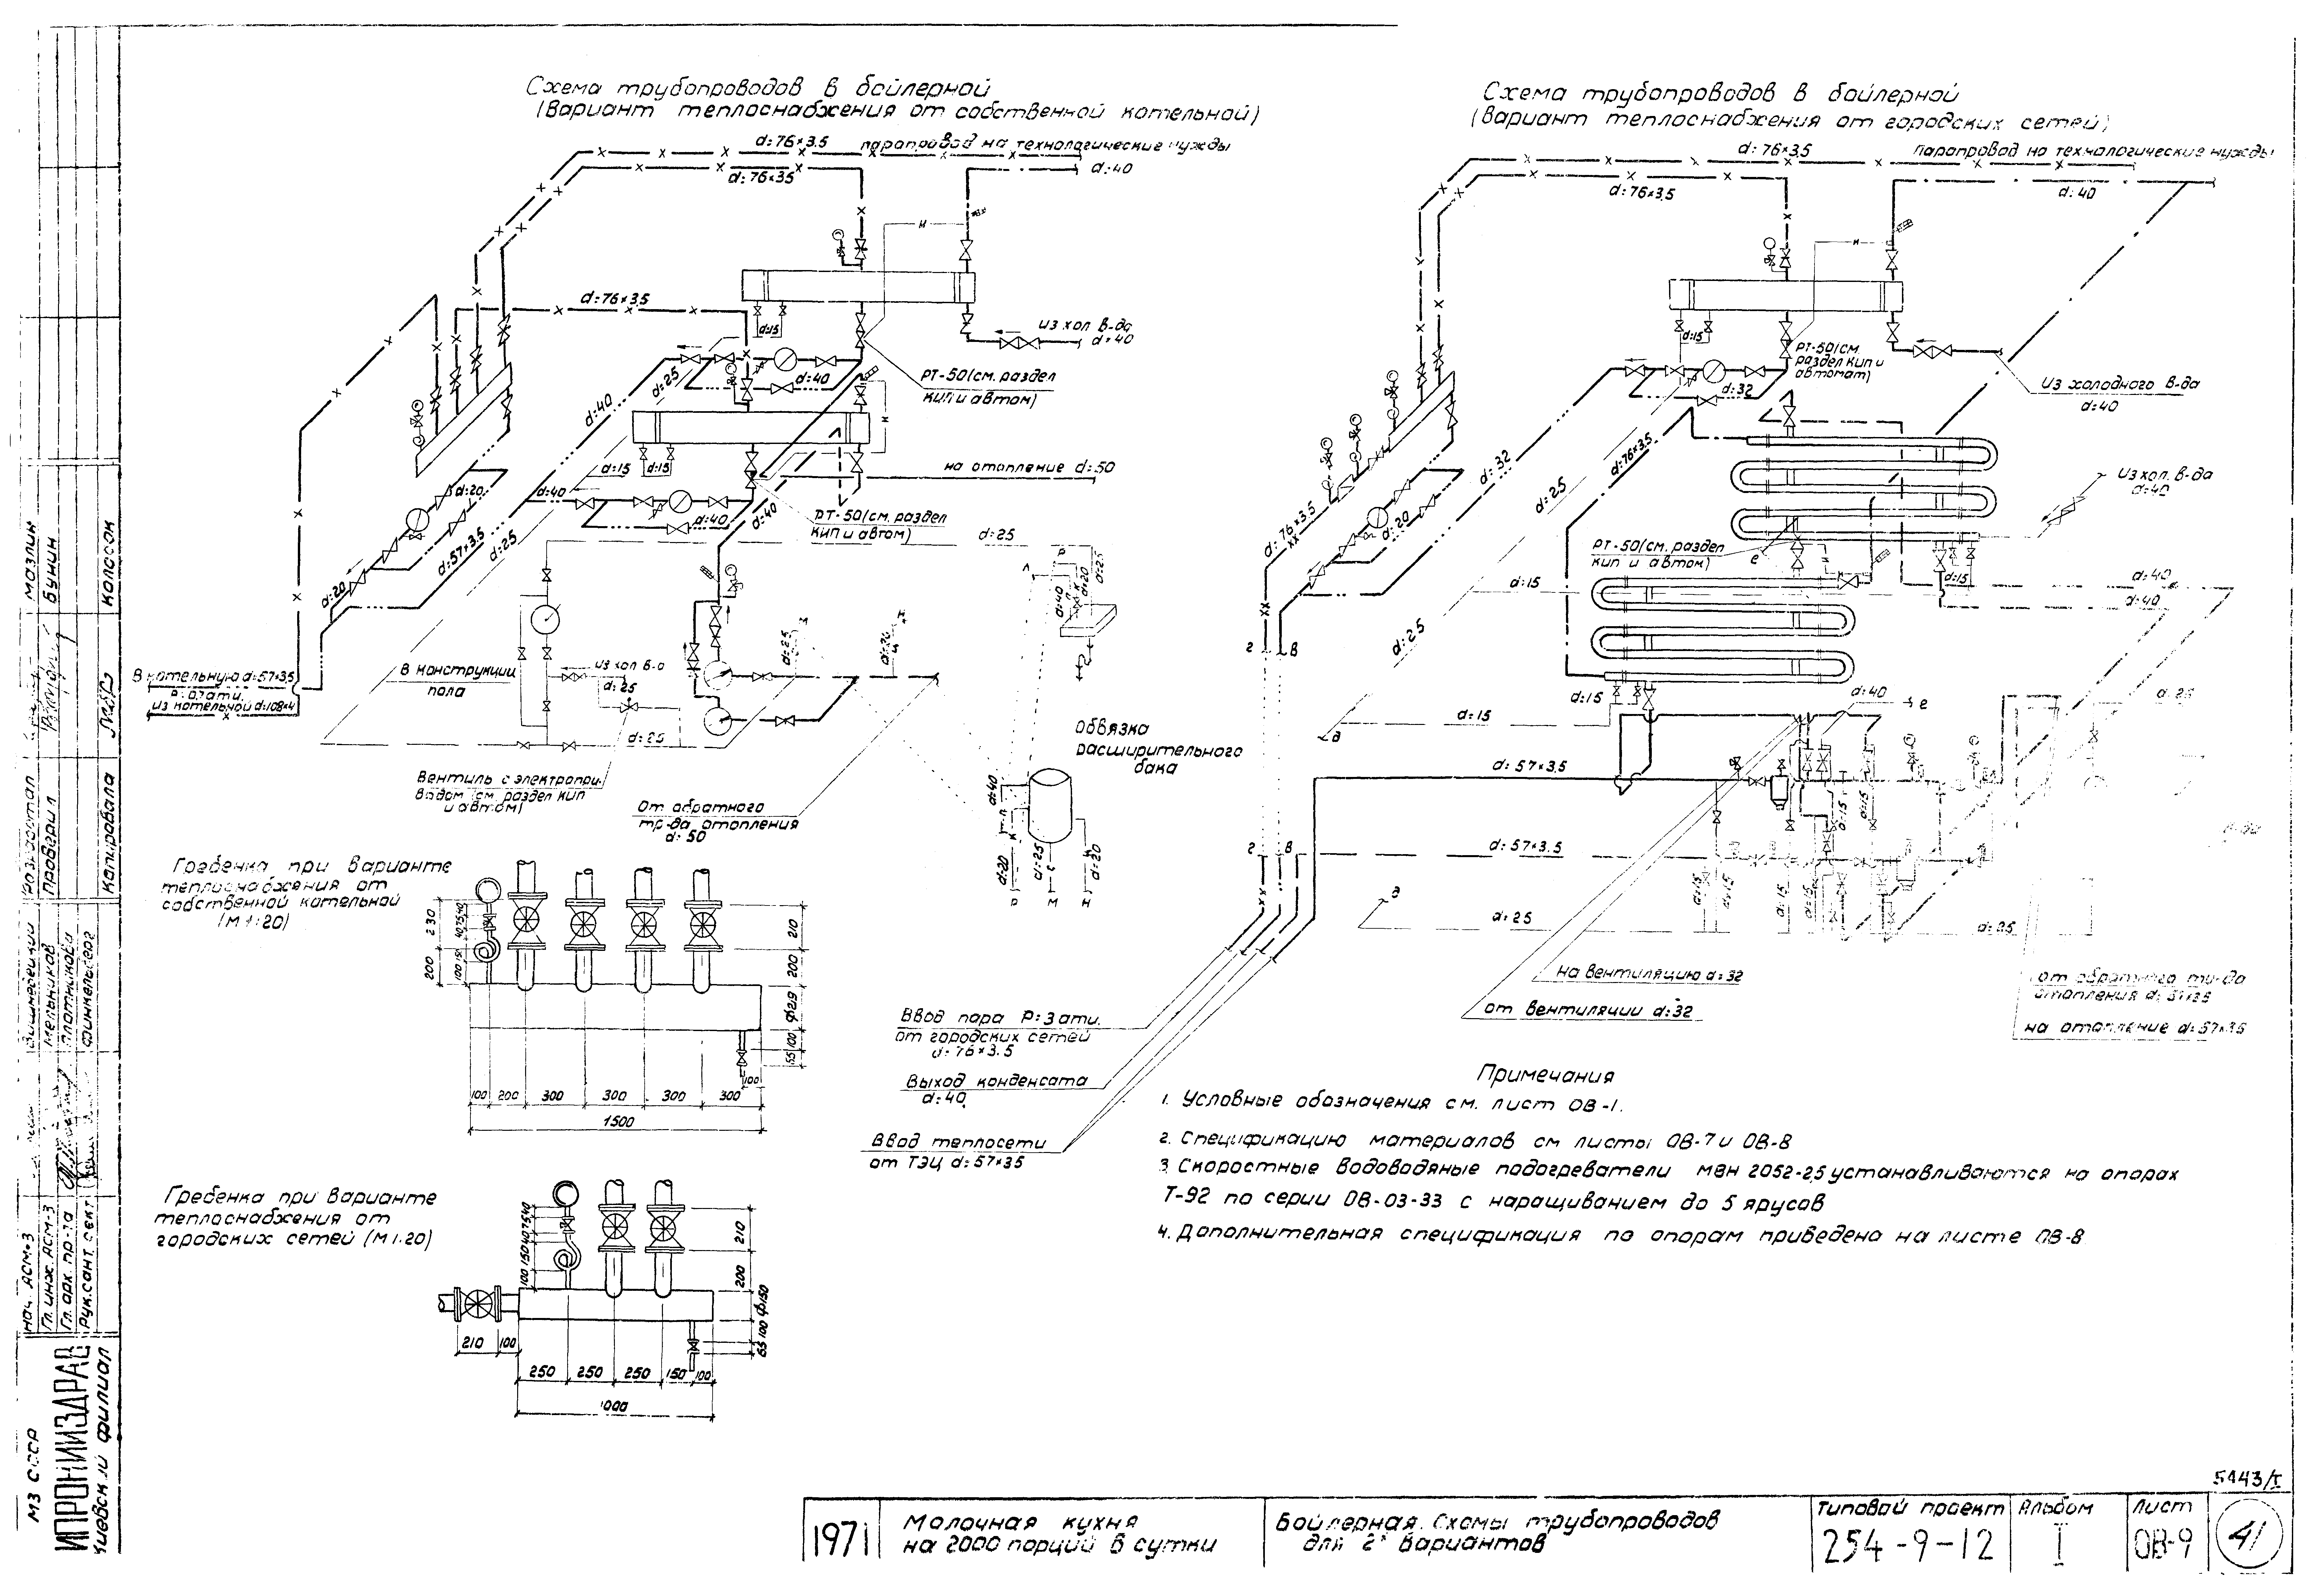 Схема трубопроводов в бойлерной
(Вариант теплоснабжения от собственной котельной)
d:76×3.5 паропровод на технологические нужды
d:76×3.5
d:40
d:76×3.5
d:15
из хол в-да
d:40
d:25
d:40
d:40
РТ-50(см. раздел
КИП и автом)
d:15
d:15
на отопление d:50
d:20
d:40
d:40
d:40
РТ-50(см. раздел
КИП и автом)
d:57×3.5
d:25
d:20
d:25
Р
d:25
d:20
d:40
d:25
d:20
из хол в-а
d:25
d:25
В котельную d:57×3,5
из котельной d:108×4
В конструкции
пола
Вентиль с электропри-
водом (см. раздел КИП
и автом)
От обратного
тр-да отопления
d:50
Обвязка
расширительного
бака
d:40
d:20
d:25
d:20
Р
М
Н
Схема трубопроводов в бойлерной
(Вариант теплоснабжения от городских сетей)
d:76×3,5
паропровод на технологические нужды
d:76×3,5
d:40
d:15
РТ-50(см.
раздел КИП и
автомат)
d:32
Из холодного в-да
d:40
d:32
d:76×3.5
d:25
Из хол. в-да
d:40
d:20
d:76×3.5
РТ-50(см. раздел
КИП и автом)
е
d:15
d:15
d:40
d:40
d:25
г
в
d:15
d:40
е
d:25
d:15
д
d:57×3,5
d:15
d:15
г
в
d:57×3.5
д
d:15
d:15
d:15
d:15
d:25
d:25
на вентиляцию d:32
от вентиляции d:32
от обратного тр-да
отопления
на отопление d:57×3.5
Ввод пара Р:3 ати.
от городских сетей
d:76×3.5
Выход конденсата
d:40
Ввод теплосети
от ТЭЦ d:57×3.5
Гребенка при варианте
теплоснабжения от
собственной котельной
(М 1:20)
230
200
210
200
ф219
100
55
100
100 200 300 300 300 300
1500
Гребенка при варианте
теплоснабжения от
городских сетей (М 1:20)
100 150 40 75 40
210
200
ф150
100
55
210 100
250 250 250 150 100
1000
Примечания
1. Условные обозначения см. лист ОВ-1.
2. Спецификацию материалов см листы ОВ-7 и ОВ-8
3. Скоростные водоводяные подогреватели МВН 2052-2,5 устанавливаются на опорах
Т-92 по серии ОВ-03-33 с наращиванием до 5 ярусов
4. Дополнительная спецификация по опорам приведена на листе ОВ-8
5443/I
1971
Молочная кухня
на 2000 порций в сутки
Бойлерная. Схемы трубопроводов
для 2х вариантов
Типовой проект
254-9-12
Альбом
I
Лист
ОВ-9
41
МЗ СССР
ИПРОНИИЗДРАВ
Киевский филиал
нач. АСМ-3
Гл. инж. АСМ-3
Гл. арх. пр-та
Рук. сант. сект.
Мельников
Плотникова
Финкельберг
Разработал
Проверил
Копировала
Мазлин
Бунин
Колосок